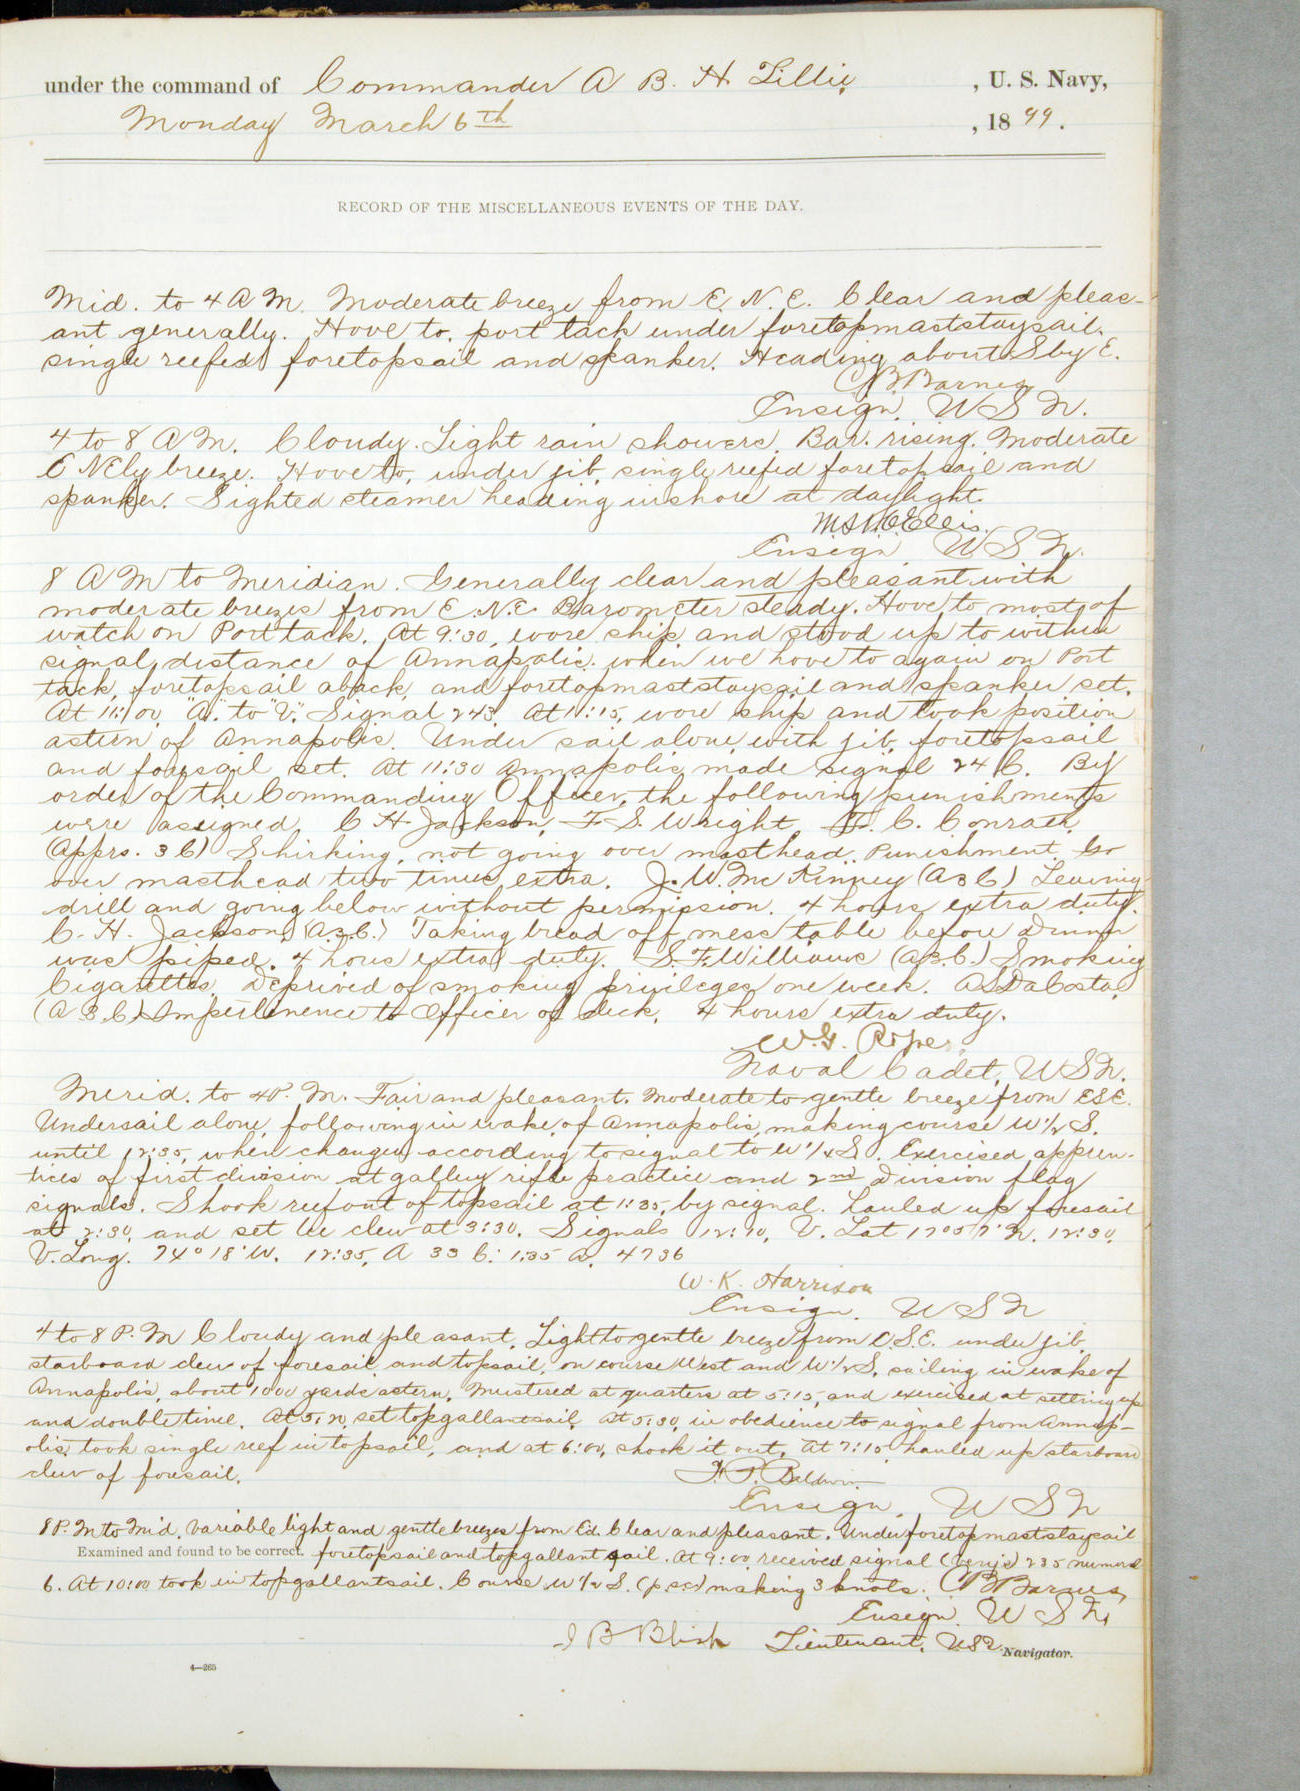 under the command of Commander A B. H. Lillie, U. S. Navy,
Monday March 6th, 1899.
RECORD OF THE MISCELLANEOUS EVENTS OF THE DAY.
Mid. to 4 A M. Moderate breeze from E. N. E. Clear and pleas-
ant generally. Hove to, port tack under foretopmaststaysail.
single reefed foretopsail and spanker. Heading about S by E.
C B Barnes
Ensign, U S N.
4 to 8 A M. Cloudy. Light rain showers. Bar. rising. Moderate
E NEly breeze. Hove to, under jib, single reefed foretopsail and
spanker. Sighted steamer heading inshore at daylight.
M St. C. Ellis.
Ensign U S N.
8 A M to Meridian. Generally clear and pleasant with
moderate breezes from E. N. E. Barometer steady. Hove to most of
watch on Port tack. At 9:30, wore ship and stood up to within
signal distance of Annapolis. when we hove to again on Port
tack, foretopsail aback, and foretopmaststaysail and spanker set.
At 11:00, "A" to "V." Signal 243. At 11:15, wore ship and took position
astern of Annapolis. Under sail alone with jib, foretopsail
and foresail set. At 11:30 Annapolis made signal 24 C. By
order of the Commanding Officer, the following punishments
were assigned C H Jackson, F S. Wright, C. Conrath,
(Apprs. 3 C) Shirking, not going over masthead. Punishment Go
over masthead two times extra. J. W. Mc Kinney (A 3 C) Leaving
drill and going below without permission. 4 hours extra duty.
C. H. Jackson, (A. 3. C.) Taking bread off mess table before dinner
was piped. 4 hours extra duty. S. F. Williams (A 3. C.) Smoking
Cigarettes, Deprived of smoking privileges one week. A S DaCosta,
(A 3. C.) Impertinence to Officer of deck. 4 hours extra duty.
W. G. Roper,
Naval Cadet, U S N.
Merid. to 4 P. M. Fair and pleasant. Moderate to gentle breeze from ESE.
Under sail alone, following in wake of Annapolis, making course W 1/2 S.
until 12:35, when changed according to signal to W 1/4 S. Exercised appren-
tices of first division at gallery rifle practice and 2nd Division flag
signals. Shook reef out of topsail at 1:35, by signal. Hauled up foresail
at 2:30, and set lee clew at 3:30. Signals 12:10, V. Lat 17° 57' N. 12:30,
V. Long. 74° 18' W. 12:35, A 33 C. 1:35 A. 4736
W. K. Harrison
Ensign, U S N
4 to 8 P. M Cloudy and pleasant. Light to gentle breeze from E. S. E. under jib,
starboard clew of foresail and topsail, on course West and W 1/2 S. sailing in wake of
Annapolis, about 1000 yards astern. Mustered at quarters at 5:15, and exercised at setting up
and double time. At 5:20, set topgallantsail. At 5:30, in obedience to signal from Annap-
olis, took single reef in topsail, and at 6:00, shook it out. At 7:10, hauled up starboard
clew of foresail.
F. P. Baldwin
Ensign, U S N
8 P. M to Mid. Variable light and gentle breezes from Ed. Clear and pleasant. Under foretopmaststaysail
Examined and found to be correct. foretopsail and topgallant sail. At 9:00 received signal 235 numeral
6. At 10:00 took in topgallantsail. Course W 1/2 S. (p s c) making 3 knots. C B Barnes,
Ensign, U S N,
J B Blish Lieutenant, U S N Navigator.
4—265